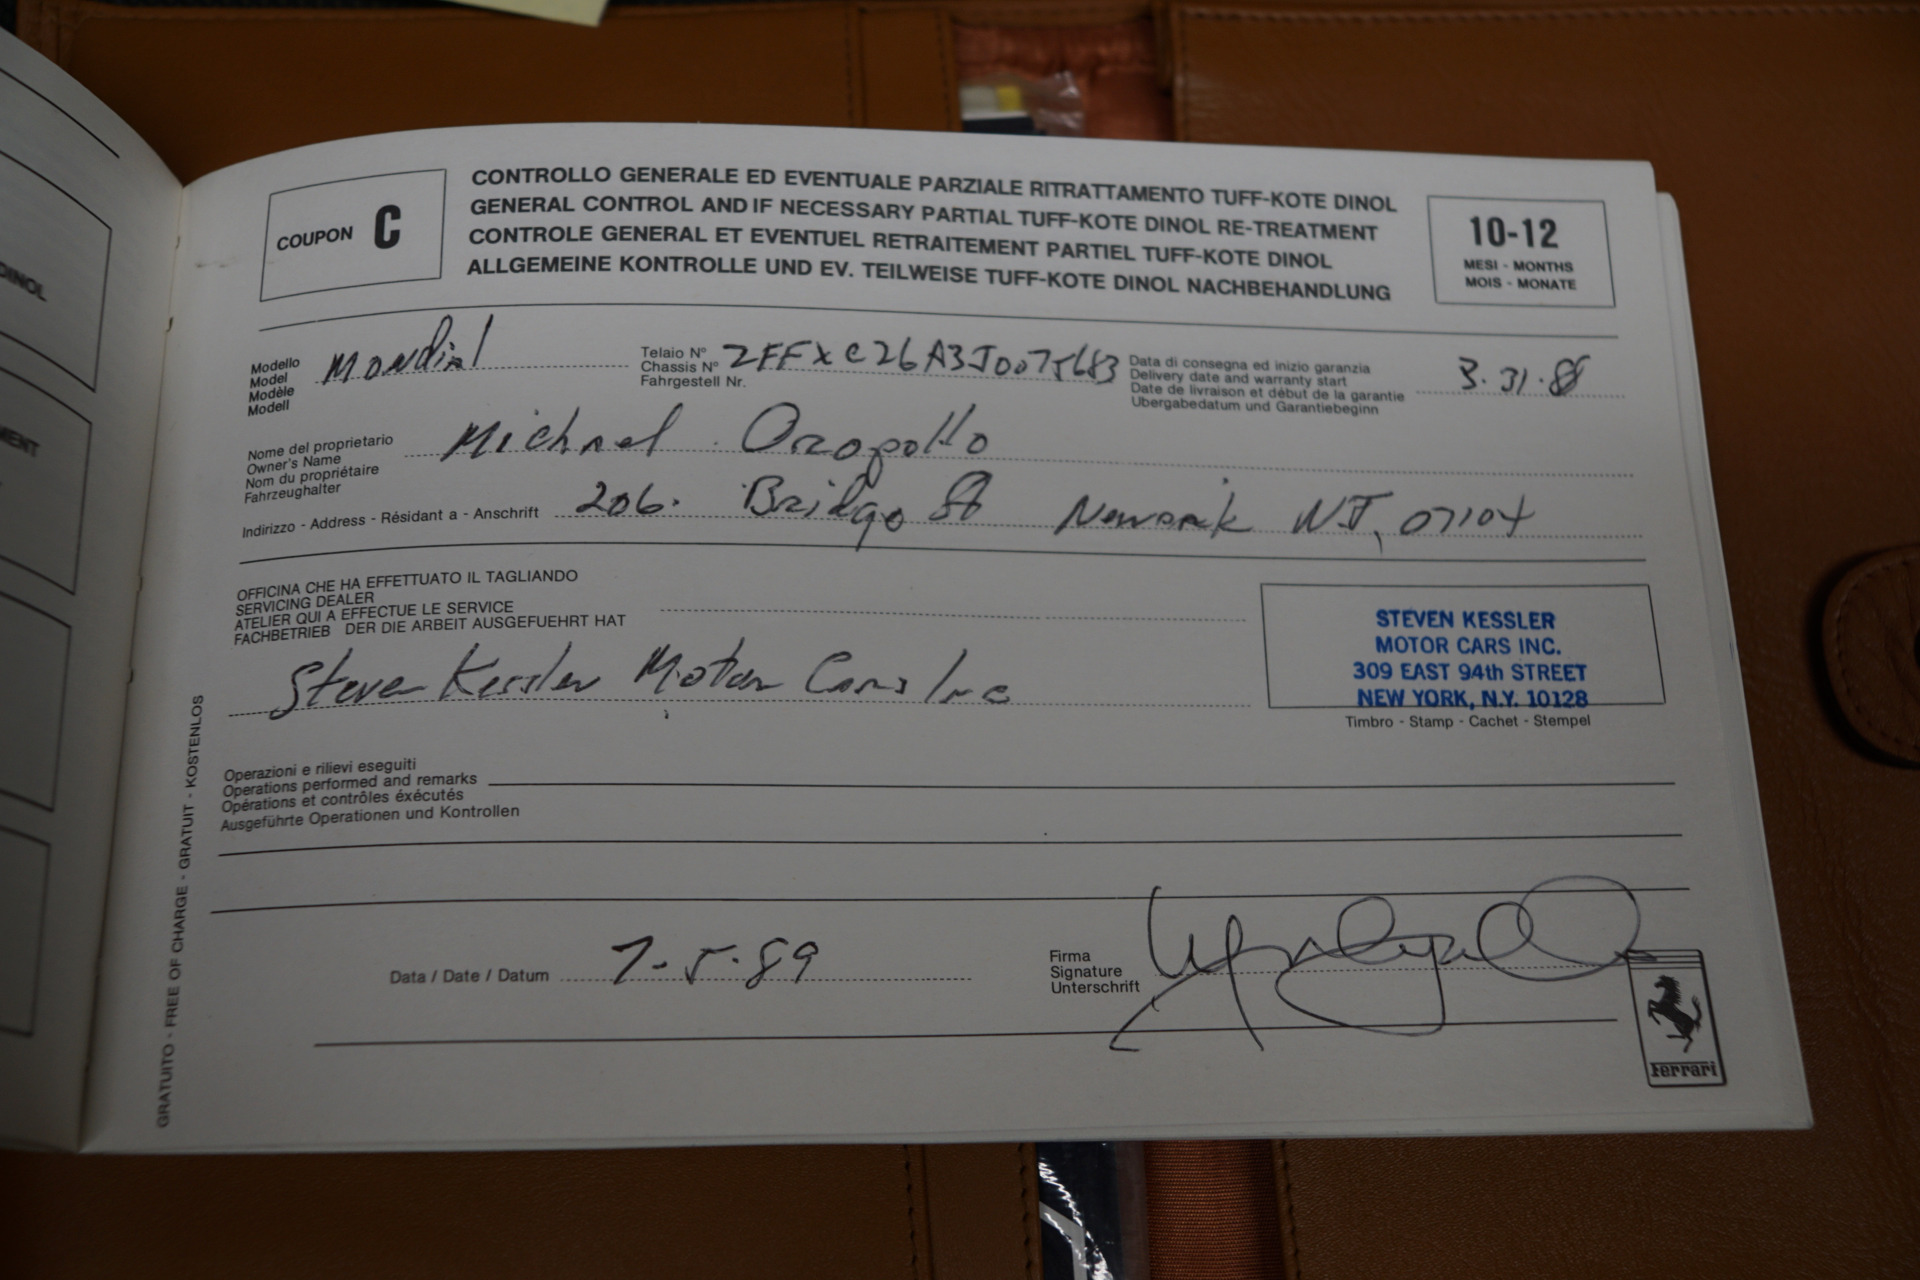 COUPON C
CONTROLLO GENERALE ED EVENTUALE PARZIALE RITRATTAMENTO TUFF-KOTE DINOL
GENERAL CONTROL AND IF NECESSARY PARTIAL TUFF-KOTE DINOL RE-TREATMENT
CONTROLE GENERAL ET EVENTUEL RETRAITEMENT PARTIEL TUFF-KOTE DINOL
ALLGEMEINE KONTROLLE UND EV. TEILWEISE TUFF-KOTE DINOL NACHBEHANDLUNG
10-12
MESI - MONTHS
MOIS - MONATE
Modello
Model
Modèle
Modell
Mondial
Telaio N°
Chassis N°
Fahrgestell Nr.
ZFFXC26A3J0075683
Data di consegna ed inizio garanzia
Delivery date and warranty start
Date de livraison et début de la garantie
Übergabedatum und Garantiebeginn
3.31.88
Nome del proprietario
Owner's Name
Nom du propriétaire
Fahrzeughalter
Michael Oropollo
Indirizzo - Address - Résidant a - Anschrift
206. Bridge St Newark NJ, 07104
OFFICINA CHE HA EFFETTUATO IL TAGLIANDO
SERVICING DEALER
ATELIER QUI A EFFECTUE LE SERVICE
FACHBETRIEB DER DIE ARBEIT AUSGEFUEHRT HAT
Steven Kessler Motor Cars Inc
STEVEN KESSLER
MOTOR CARS INC.
309 EAST 94th STREET
NEW YORK, N.Y. 10128
Timbro - Stamp - Cachet - Stempel
Operazioni e rilievi eseguiti
Operations performed and remarks
Opérations et contrôles éxécutés
Ausgeführte Operationen und Kontrollen
Data / Date / Datum
7-5-89
Firma
Signature
Unterschrift
Ferrari
GRATUITO - FREE OF CHARGE - GRATUIT - KOSTENLOS
DINOL
MENT